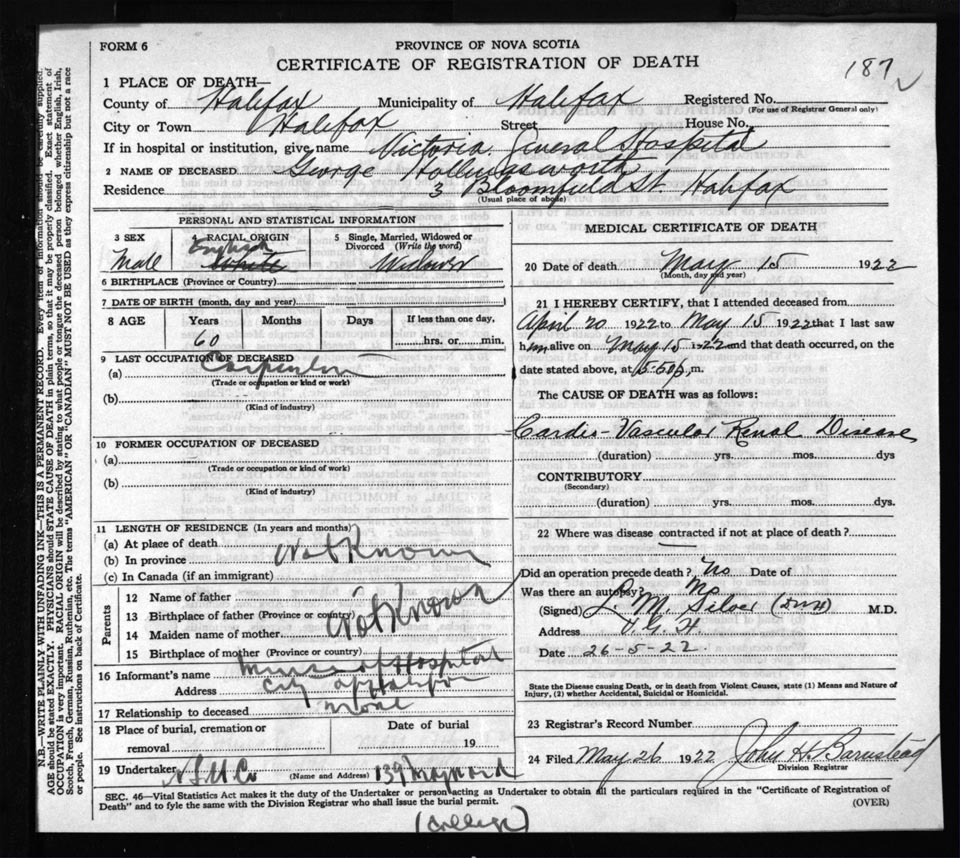 FORM 6
PROVINCE OF NOVA SCOTIA
CERTIFICATE OF REGISTRATION OF DEATH
187
1 PLACE OF DEATH—
County of Halifax Municipality of Halifax Registered No.
(For use of Registrar General only)
City or Town Halifax Street House No.
If in hospital or institution, give name Victoria General Hospital
2 NAME OF DECEASED George Hollingsworth
Residence 3 Bloomfield St. Halifax
(Usual place of abode)
PERSONAL AND STATISTICAL INFORMATION
3 SEX RACIAL ORIGIN 5 Single, Married, Widowed or Divorced (Write the word)
Male English White Widower
6 BIRTHPLACE (Province or Country)
7 DATE OF BIRTH (month, day and year)
8 AGE Years Months Days If less than one day,
60 hrs. or min.
9 LAST OCCUPATION OF DECEASED
(a) Carpenter
(Trade or occupation or kind or work)
(b)
(Kind of industry)
10 FORMER OCCUPATION OF DECEASED
(a)
(Trade or occupation or kind or work)
(b)
(Kind of industry)
11 LENGTH OF RESIDENCE (In years and months)
(a) At place of death
(b) In province Not Known
(c) In Canada (if an immigrant)
Parents
12 Name of father
13 Birthplace of father (Province or country) Not Known
14 Maiden name of mother
15 Birthplace of mother (Province or country)
16 Informant's name Hospital
Address City of Halifax
17 Relationship to deceased none
18 Place of burial, cremation or removal Date of burial 19
19 Undertaker N.S.U.Co (Name and Address) 139 Maynard
MEDICAL CERTIFICATE OF DEATH
20 Date of death May 15 1922
(Month, day and year)
21 I HEREBY CERTIFY, that I attended deceased from
April 20 1922 to May 15 1922 that I last saw
him alive on May 15 1922 and that death occurred, on the
date stated above, at 5.50 p.m.
The CAUSE OF DEATH was as follows:
Cardio-Vascular Renal Disease
(duration) yrs. mos. dys
CONTRIBUTORY
(Secondary)
(duration) yrs. mos. dys.
22 Where was disease contracted if not at place of death?
Did an operation precede death? No Date of
Was there an autopsy? No
(Signed) L. M. Silver M.D.
Address V. G. H.
Date 26-5-22.
State the Disease causing Death, or in death from Violent Causes, state (1) Means and Nature of
Injury, (2) whether Accidental, Suicidal or Homicidal.
23 Registrar's Record Number
24 Filed May 26 1922 John H. Barnstead
Division Registrar
SEC. 46—Vital Statistics Act makes it the duty of the Undertaker or person acting as Undertaker to obtain all the particulars required in the "Certificate of Registration of
Death" and to fyle the same with the Division Registrar who shall issue the burial permit. (OVER)
(College)
N.B.—WRITE PLAINLY WITH UNFADING INK—THIS IS A PERMANENT RECORD. Every item of information should be carefully supplied.
AGE should be stated EXACTLY. PHYSICIANS should STATE CAUSE OF DEATH in plain terms, so that it may be properly classified. Exact statement of
OCCUPATION is very important. RACIAL ORIGIN will be described by stating to what people or tongue the deceased person belonged, whether English, Irish,
Scotch, French, German, Russian, Ruthenian, etc. The terms "AMERICAN" OR "CANADIAN" MUST NOT BE USED as they express citizenship but not a race
or people. See instructions on back of Certificate.